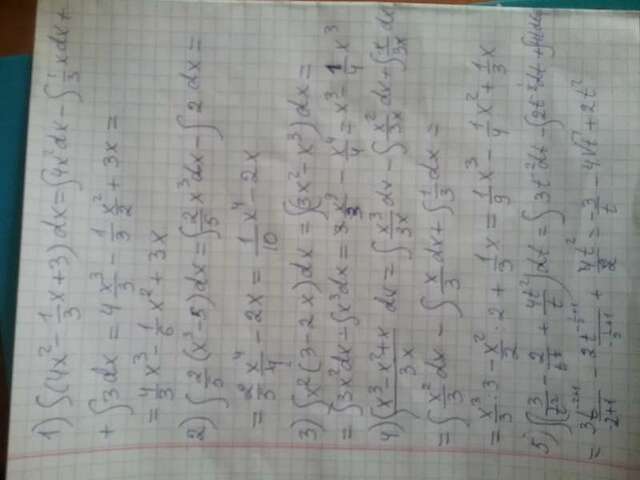 1) ∫(4x² - 1/3 x + 3) dx = ∫4x² dx - ∫1/3 x dx +
+ ∫3 dx = 4 x³/3 - 1/3 x²/2 + 3x =
= 4/3 x³ - 1/6 x² + 3x
2) ∫ 2/5 (x³ - 5) dx = ∫ 2/5 x³ dx - ∫ 2 dx =
= 2/5 x⁴/4 - 2x = 1/10 x⁴ - 2x
3) ∫x² (3 - 2x) dx = ∫(3x² - x³) dx =
= ∫3x² dx - ∫x³ dx = 3 x³/3 - x⁴/4 = x³ - 1/4 x³
4) ∫ (x³ - x² + x)/3x dx = ∫ x³/3x dx - ∫ x²/3x dx + ∫ x/3x dx
= ∫ x²/3 dx - ∫ x/3 dx + ∫ 1/3 dx =
= x³/3 · 3 - x²/2 · 2 + 1/3 x = 1/9 x³ - 1/4 x² + 1/3 x
5) ∫(3/t² - 2/√t + 4t²/t) dt = ∫ 3t⁻² dt - ∫2t dt +
= 3t⁻²⁺¹/-2+1 - 2t + 4t²/2 = -3/t - 4√t + 2t²